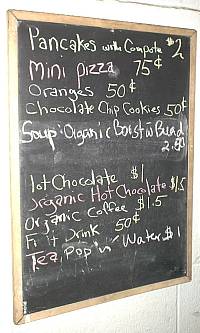 Pancakes with Compote $2
Mini Pizza 75¢
Oranges 50¢
Chocolate Chip Cookies 50¢
Soup: Organic Borst w Bread
2.50
Hot Chocolate $1
Organic Hot Chocolate $1.5
Organic Coffee $1.5
Fruit Drink 50¢
Tea, Pop n' Water $1